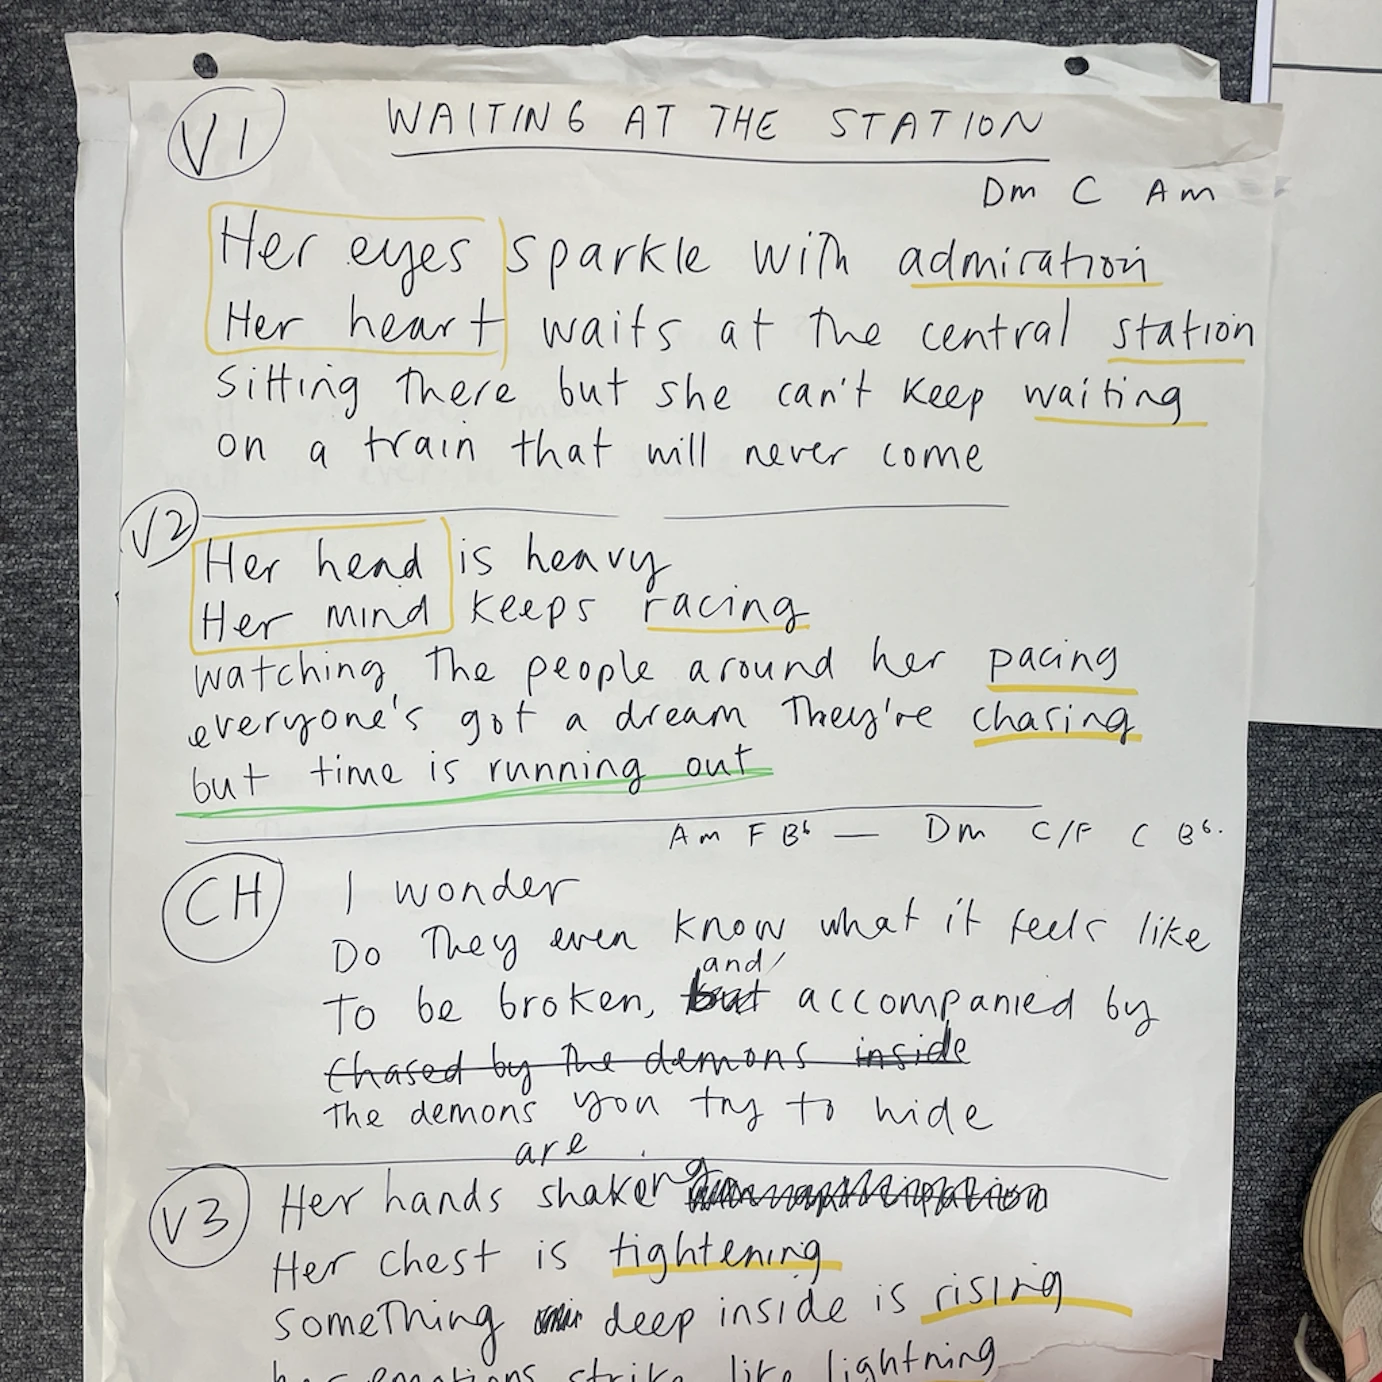 V1
WAITING AT THE STATION
Dm C Am
Her eyes sparkle with admiration
Her heart waits at the central station
Sitting there but she can't keep waiting
on a train that will never come
V2
Her head is heavy
Her mind keeps racing
watching the people around her pacing
everyone's got a dream they're chasing
but time is running out
Am F Bb — Dm C/F C Bb.
CH
I wonder
Do they even know what it feels like
and
To be broken, but accompanied by
Chased by the demons inside
The demons you try to hide
are
V3
Her hands shaking anticipation
Her chest is tightening
something deep inside is rising
her emotions strike like lightning